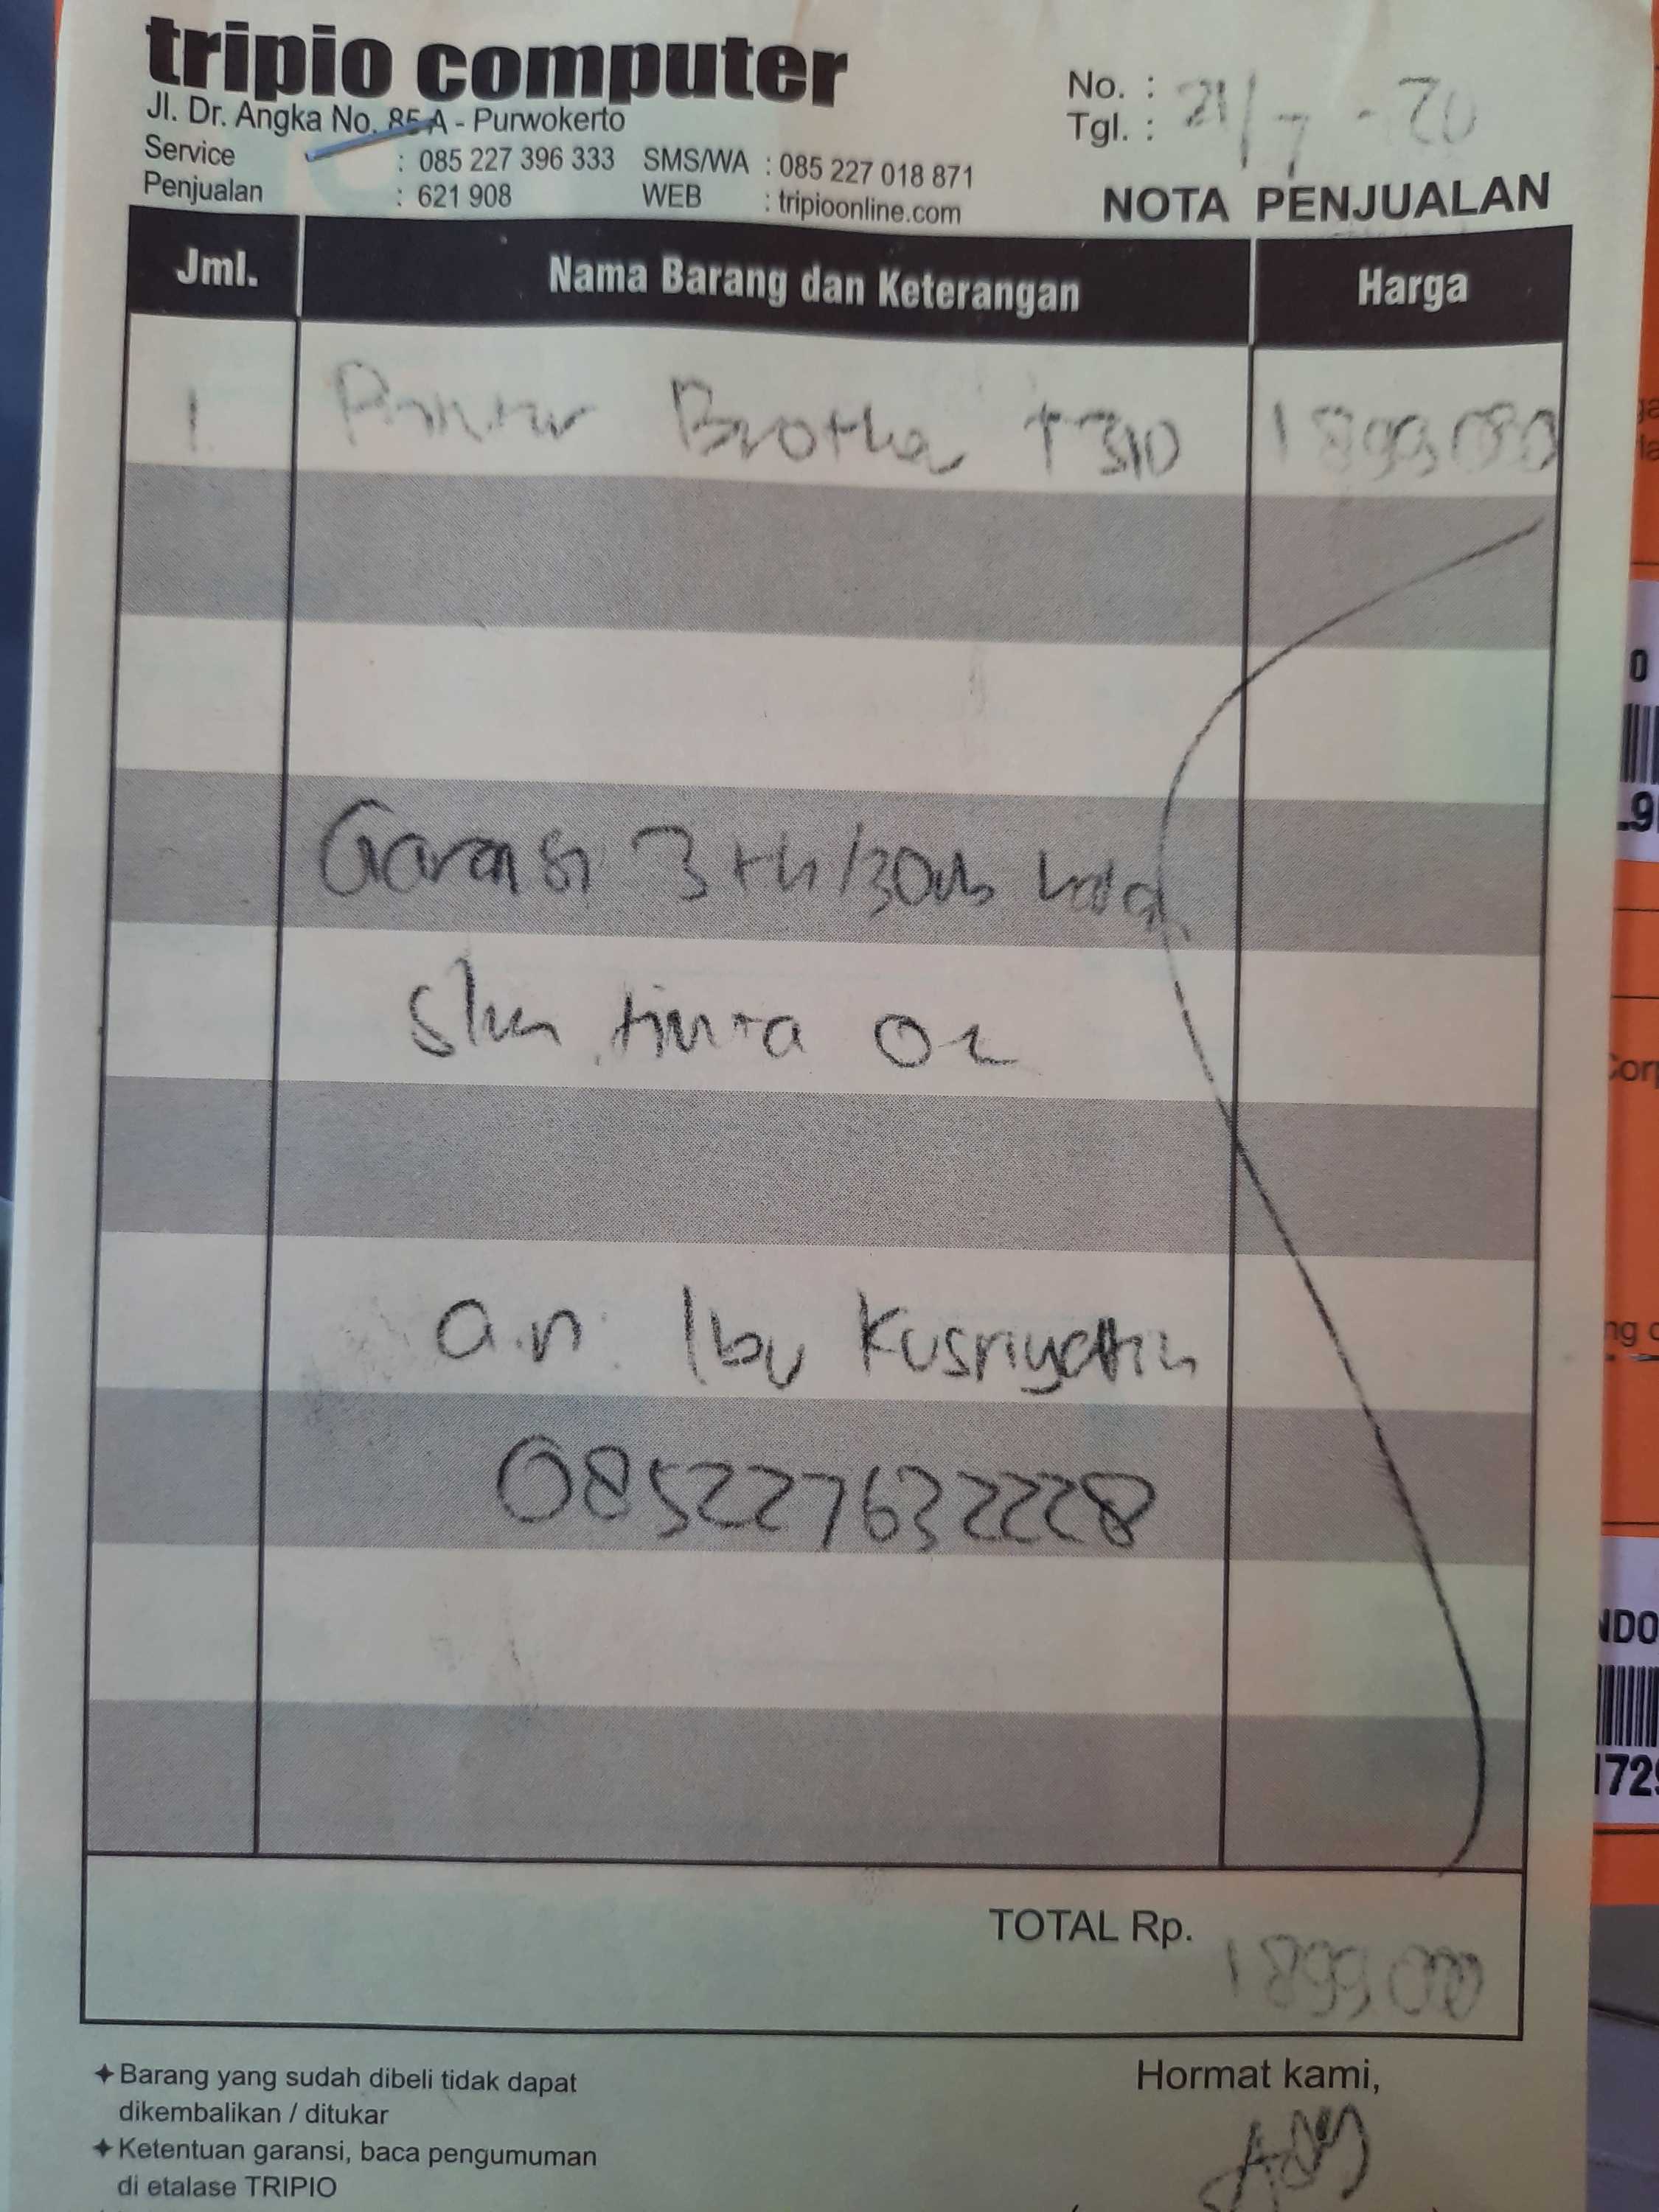 tripio computer
Jl. Dr. Angka No. 85 A - Purwokerto
Service : 085 227 396 333 SMS/WA : 085 227 018 871
Penjualan : 621 908 WEB : tripioonline.com
No. :
Tgl. : 21/7 - 20
NOTA PENJUALAN
Jml. Nama Barang dan Keterangan Harga
1. Printer Brother T310 1899.000
Garansi 3 th/30rb
tinta
a.n. Ibu Kusriyatin
085227632228
TOTAL Rp. 1899000
✦ Barang yang sudah dibeli tidak dapat
dikembalikan / ditukar
✦ Ketentuan garansi, baca pengumuman
di etalase TRIPIO
Hormat kami,
0
.9
Corp
ng
NDO
172